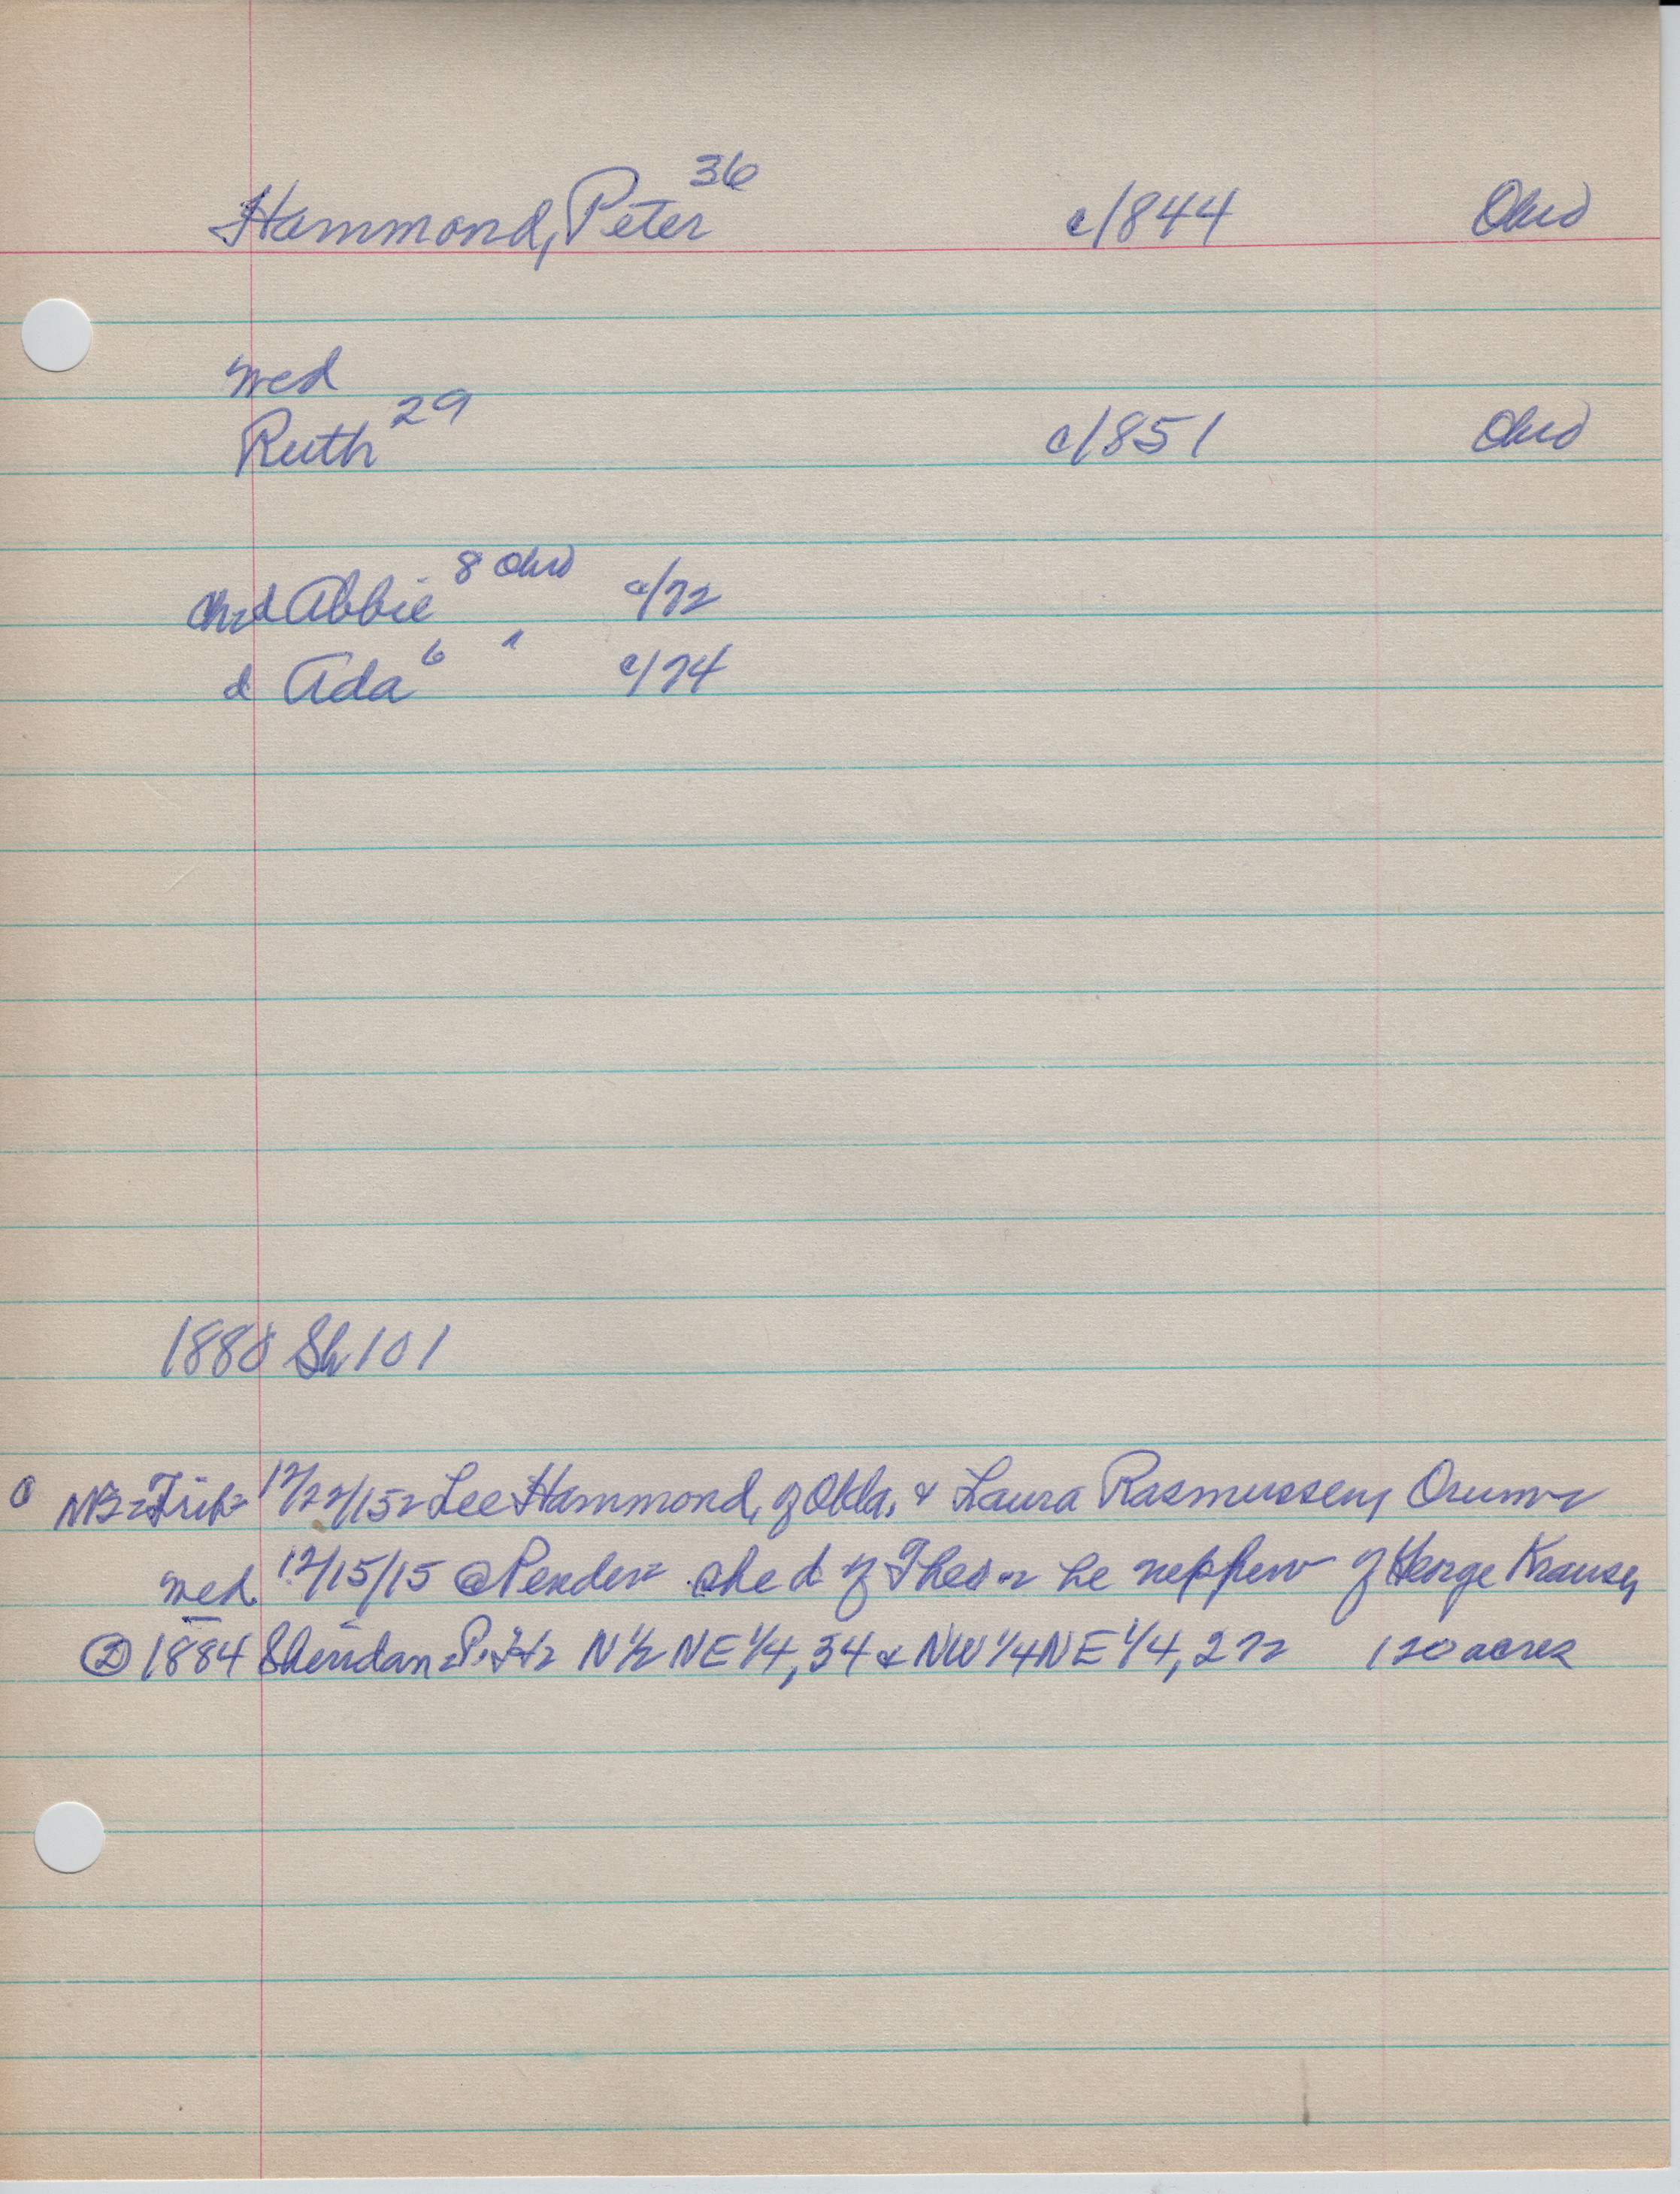 Hammond, Peter 36 c/844 Ohio
wed
Ruth 29 c/851 Ohio
chrd Abbie 8 Ohio c/72
d Ada 6 " c/74
1880 Sh 101
NB= Trib= 12/22/15= Lee Hammond, of Okla, & Laura Rasmussen, Orum=
wed 12/15/15 @ Pender= she d of Theo= he nephew of George Krause,
② 1884 Sheridan= P.H= N 1/2 NE 1/4, 34 & NW 1/4 NE 1/4, 27= 120 acres